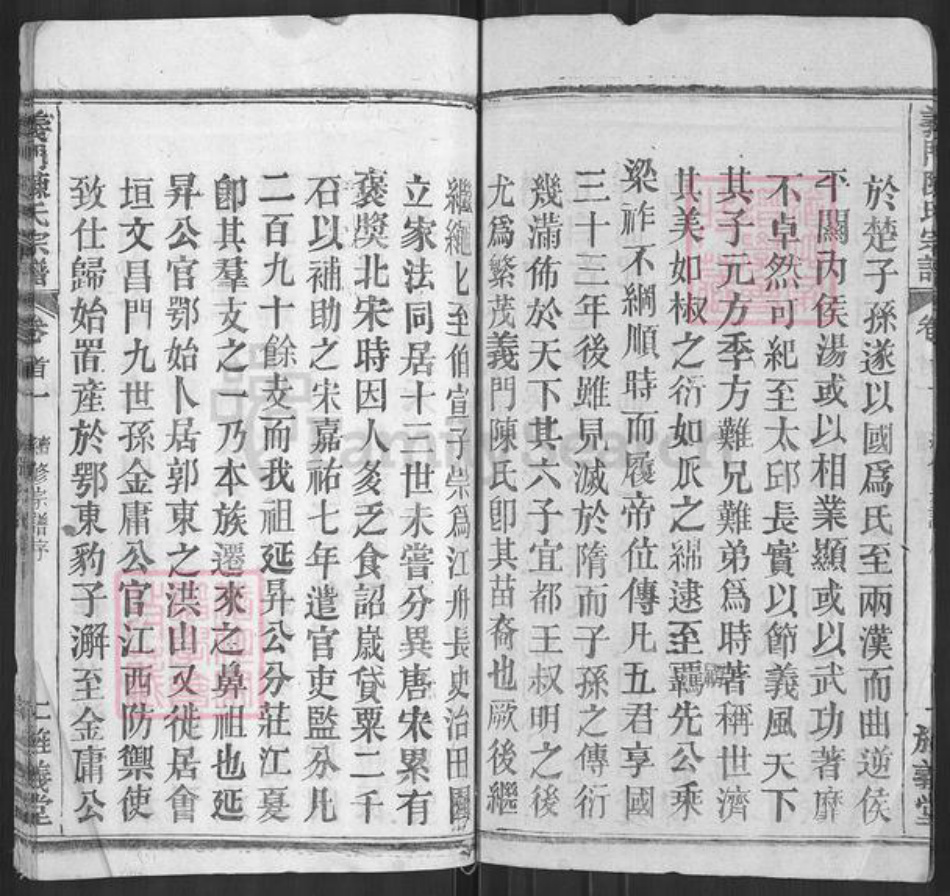 於楚子孫遂以國爲氏至兩漢而曲逆侯
不關內侯湯或以相業顯或以武功著靡
不卓然可紀至太邱長實以節義風天下
其子元方季方難兄難弟爲時著稱世濟
其美如椒之衍如瓜之綿逮至霸先公乘
梁祚不綱順時而履帝位傳凡五君享國
三十三年後雖見滅於隋而子孫之傳衍
幾滿佈於天下其六子宜都王叔明之後
尤爲繁茂義門陳氏卽其苗裔也厥後繼
繼繩繩至伯宣子崇爲江州長史治田園
立家法同居十三世未嘗分異唐宋累有
褒獎北宋時因人多乏食詔嵗貸粟二千
石以補助之宋嘉祐七年遣官吏監分凡
二百九十餘支而我祖延昇公分莊江夏
卽其羣支之一乃本族遷來之鼻祖也延
昇公官鄂始卜居郭東之洪山又徙居會
垣文昌門九世孫金庸公官江西防禦使
致仕歸始置産於鄂東豹子澥至金庸公
義門陳氏宗譜 卷首一 續修宗譜序 二 旌義堂